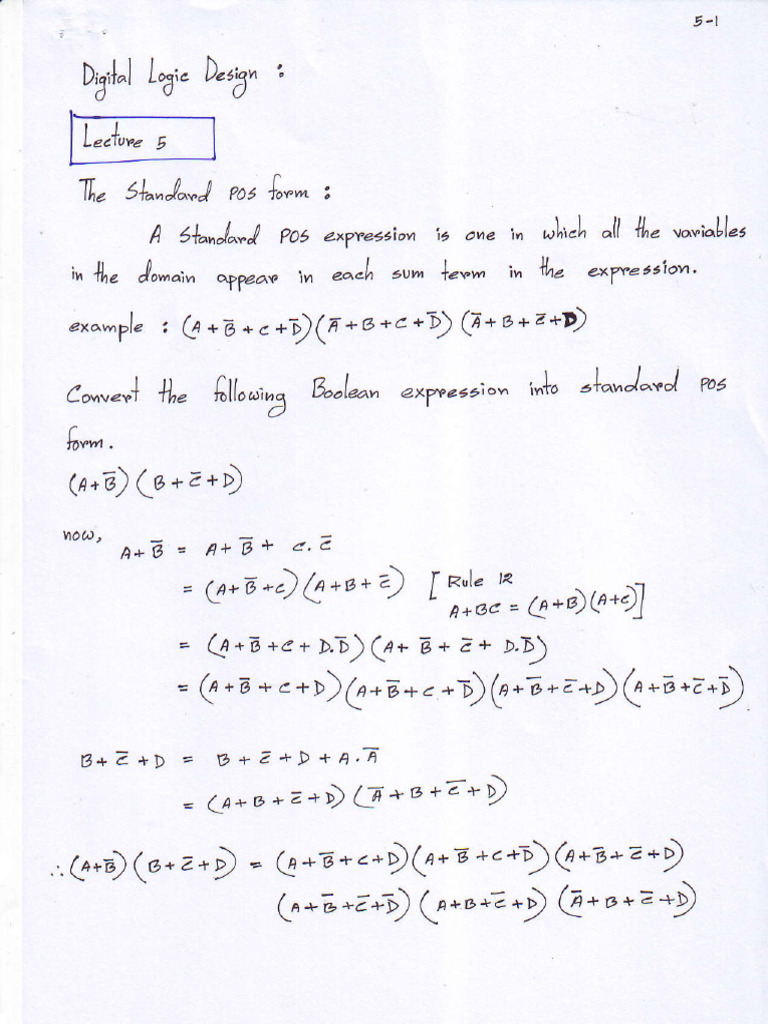 5-1
Digital Logic Design :
Lecture 5
The Standard POS form :
A Standard POS expression is one in which all the variables
in the domain appear in each sum term in the expression.
example : (A+B̅+C+D̅)(A̅+B+C+D̅)(A̅+B+C̅+D)
Convert the following Boolean expression into standard POS
form.
(A+B̅)(B+C̅+D)
now, A+B̅ = A+B̅+ C.C̅
= (A+B̅+C)(A+B+C̅) [Rule 12
A+BC = (A+B)(A+C)]
= (A+B̅+C+D.D̅)(A+B̅+C̅+D.D̅)
= (A+B̅+C+D)(A+B̅+C+D̅)(A+B̅+C̅+D)(A+B̅+C̅+D̅)
B+C̅+D = B+C̅+D+A.A̅
= (A+B+C̅+D)(A̅+B+C̅+D)
∴(A+B̅)(B+C̅+D) = (A+B̅+C+D)(A+B̅+C+D̅)(A+B̅+C̅+D)
(A+B̅+C̅+D̅)(A+B+C̅+D)(A̅+B+C̅+D)